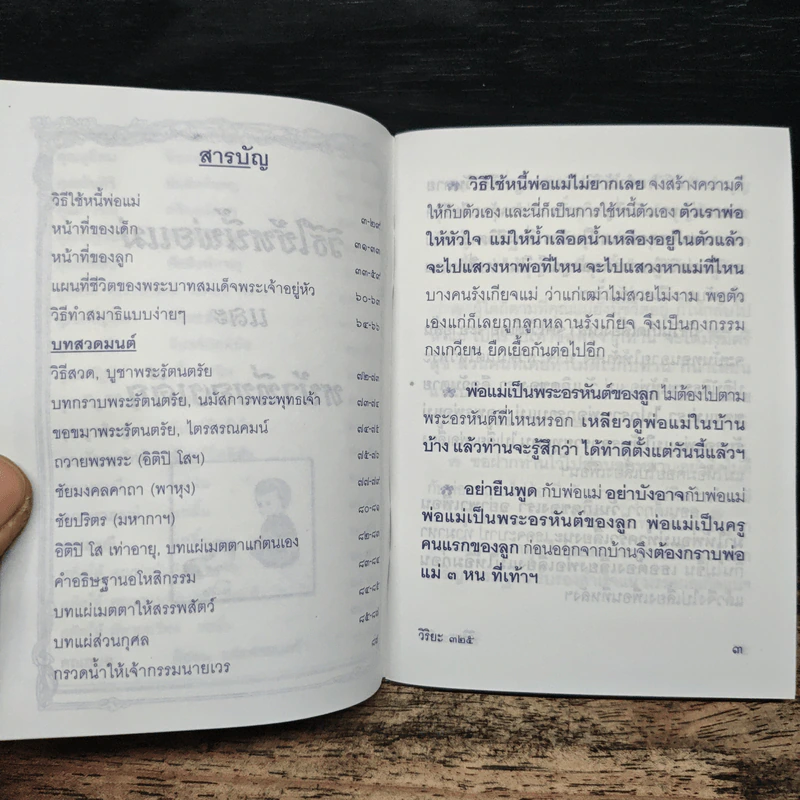 สารบัญ
วิธีใช้หนี้พ่อแม่ ๓-๒๙
หน้าที่ของเด็ก ๓๑-๓๓
หน้าที่ของลูก ๓๓-๕๙
แผนที่ชีวิตของพระบาทสมเด็จพระเจ้าอยู่หัว ๖๐-๖๓
วิธีทำสมาธิแบบง่ายๆ ๖๔-๖๖
บทสวดมนต์
วิธีสวด, บูชาพระรัตนตรัย ๗๒-๗๓
บทกราบพระรัตนตรัย, นมัสการพระพุทธเจ้า ๗๓-๗๔
ขอขมาพระรัตนตรัย, ไตรสรณคมน์ ๗๔-๗๕
ถวายพรพระ (อิติปิ โสฯ) ๗๕-๗๖
ชัยมงคลคาถา (พาหุง) ๗๗-๗๙
ชัยปริตร (มหากาฯ) ๘๐-๘๑
อิติปิ โส เท่าอายุ, บทแผ่เมตตาแก่ตนเอง ๘๒-๘๓
คำอธิษฐานอโหสิกรรม ๘๓-๘๔
บทแผ่เมตตาให้สรรพสัตว์ ๘๔-๘๕
บทแผ่ส่วนกุศล ๘๕-๘๗
กรวดน้ำให้เจ้ากรรมนายเวร
วิธีใช้หนี้พ่อแม่ไม่ยากเลย จงสร้างความดี
ให้กับตัวเอง และนี่ก็เป็นการใช้หนี้ตัวเอง ตัวเราพ่อ
ให้หัวใจ แม่ให้น้ำเลือดน้ำเหลืองอยู่ในตัวแล้ว
จะไปแสวงหาพ่อที่ไหน จะไปแสวงหาแม่ที่ไหน
บางคนรังเกียจแม่ ว่าแก่เฒ่าไม่สวยไม่งาม พอตัว
เองแก่ก็เลยถูกลูกหลานรังเกียจ จึงเป็นกงกรรม
กงเกวียน ยืดเยื้อกันต่อไปอีก
พ่อแม่เป็นพระอรหันต์ของลูก ไม่ต้องไปตาม
พระอรหันต์ที่ไหนหรอก เหลียวดูพ่อแม่ในบ้าน
บ้าง แล้วท่านจะรู้สึกว่า ได้ทำดีตั้งแต่วันนี้แล้วฯ
อย่ายืนพูด กับพ่อแม่ อย่าบังอาจกับพ่อแม่
พ่อแม่เป็นพระอรหันต์ของลูก พ่อแม่เป็นครู
คนแรกของลูก ก่อนออกจากบ้านจึงต้องกราบพ่อ
แม่ ๓ หน ที่เท้าฯ
วิริยะ ๓๒๕
๓